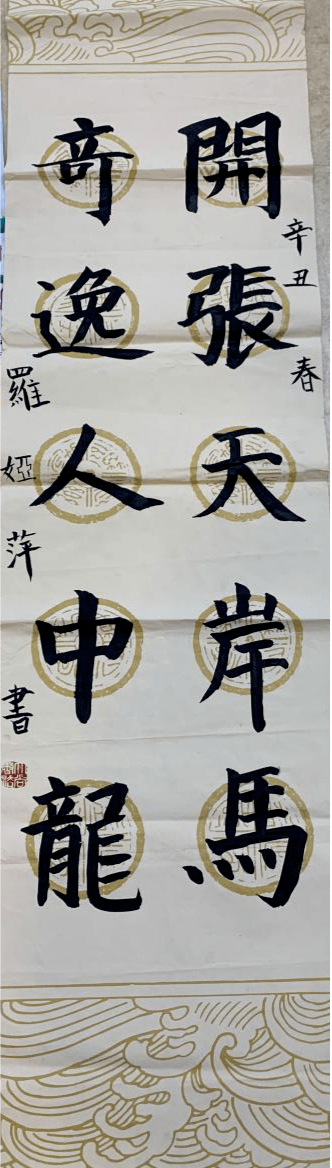 辛丑春
開張天岸馬
奇逸人中龍
羅婭萍書